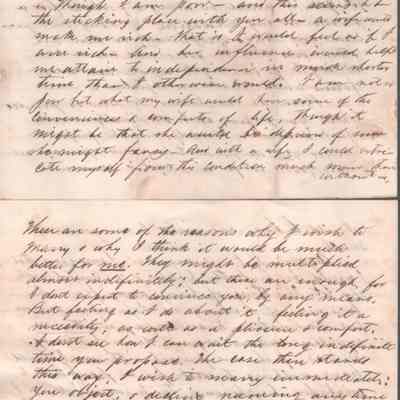 though I am poor – and this seems to
the sticking place with you all – a wife would
make me rich – that is I would feel as if I
were rich – and her influence would help
me attain to independence in much shorter
time than I otherwise would. I am not so
poor but what my wife could have some of the
conveniences & comforts of life, though it
might be that she would be deprived of some
she might fancy – And with a wife I could extri-
cate myself from this condition much more than
without
These are some of the reasons why I wish to
marry & why I think it would be much
better for me. They might be multiplied
almost indefinitely; but these are enough, for
I dont expect to convince you by any means.
But feeling as I do about it, feeling it a
necessity, as well as a pleasure & comfort,
I dont see how I can wait the long indefinite
time you propose. The case then stands
this way. I wish to marry immediately;
You object, & decline naming any time